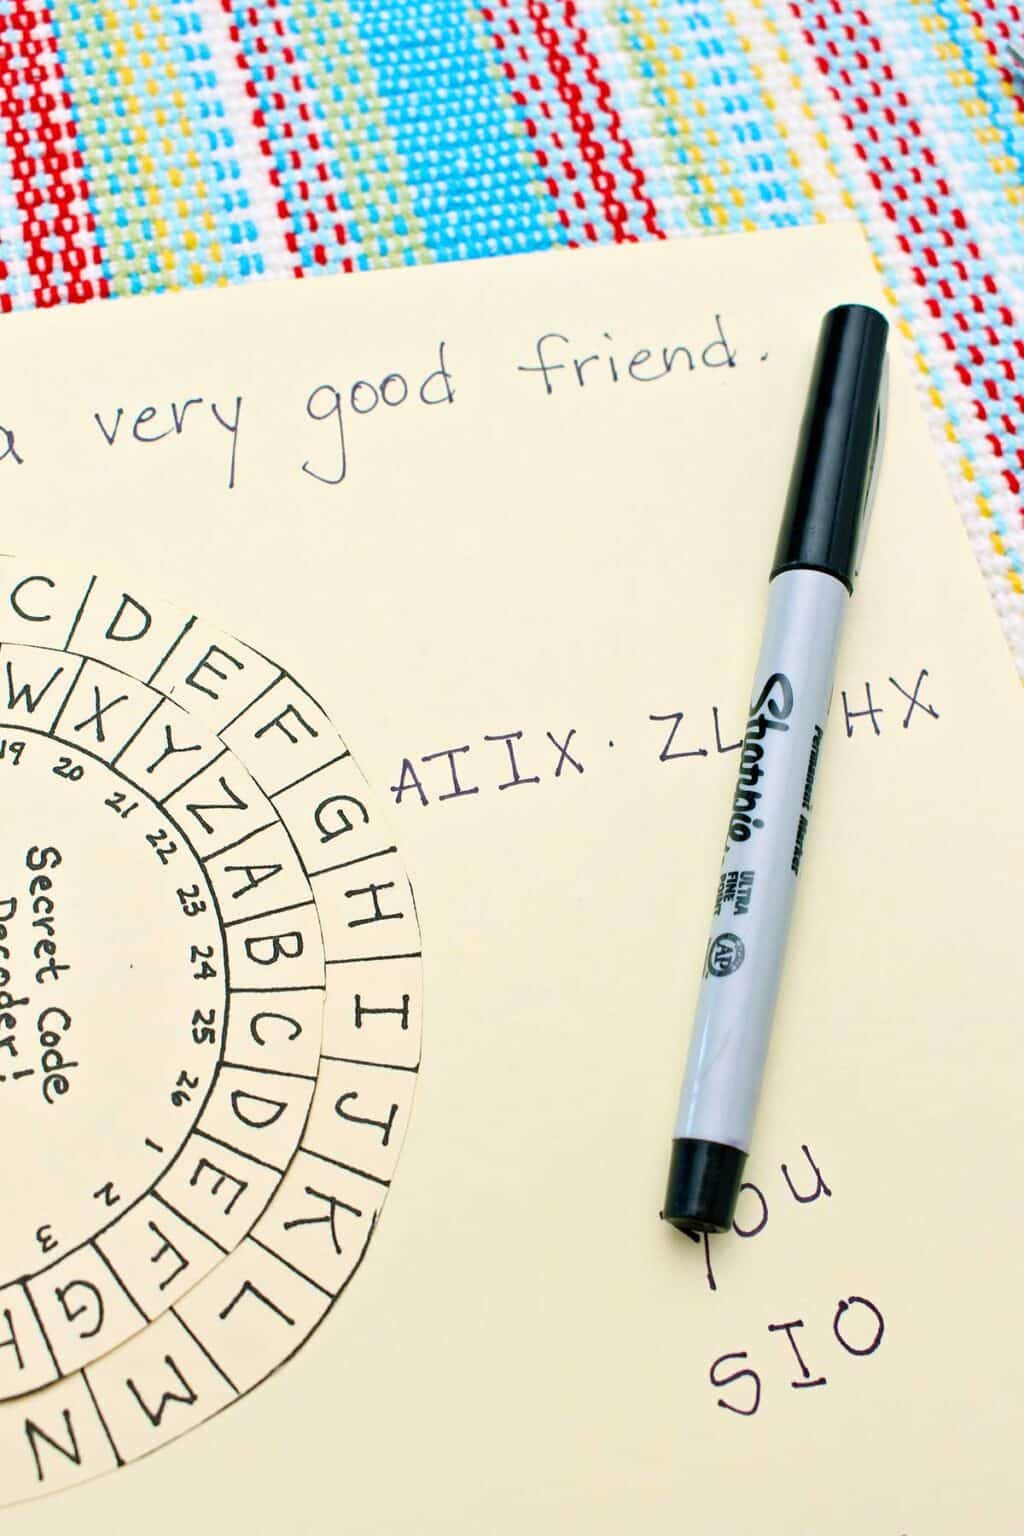 a very good friend.
AIIX. ZL HX
Sharpie
Permanent Marker
ULTRA
FINE
POINT
AP
C D E F G H I J K L M N
W X Y Z A B C D E F G H
19 20 21 22 23 24 25 26 1 2 3
Secret Code
Decoder!
you
SIO